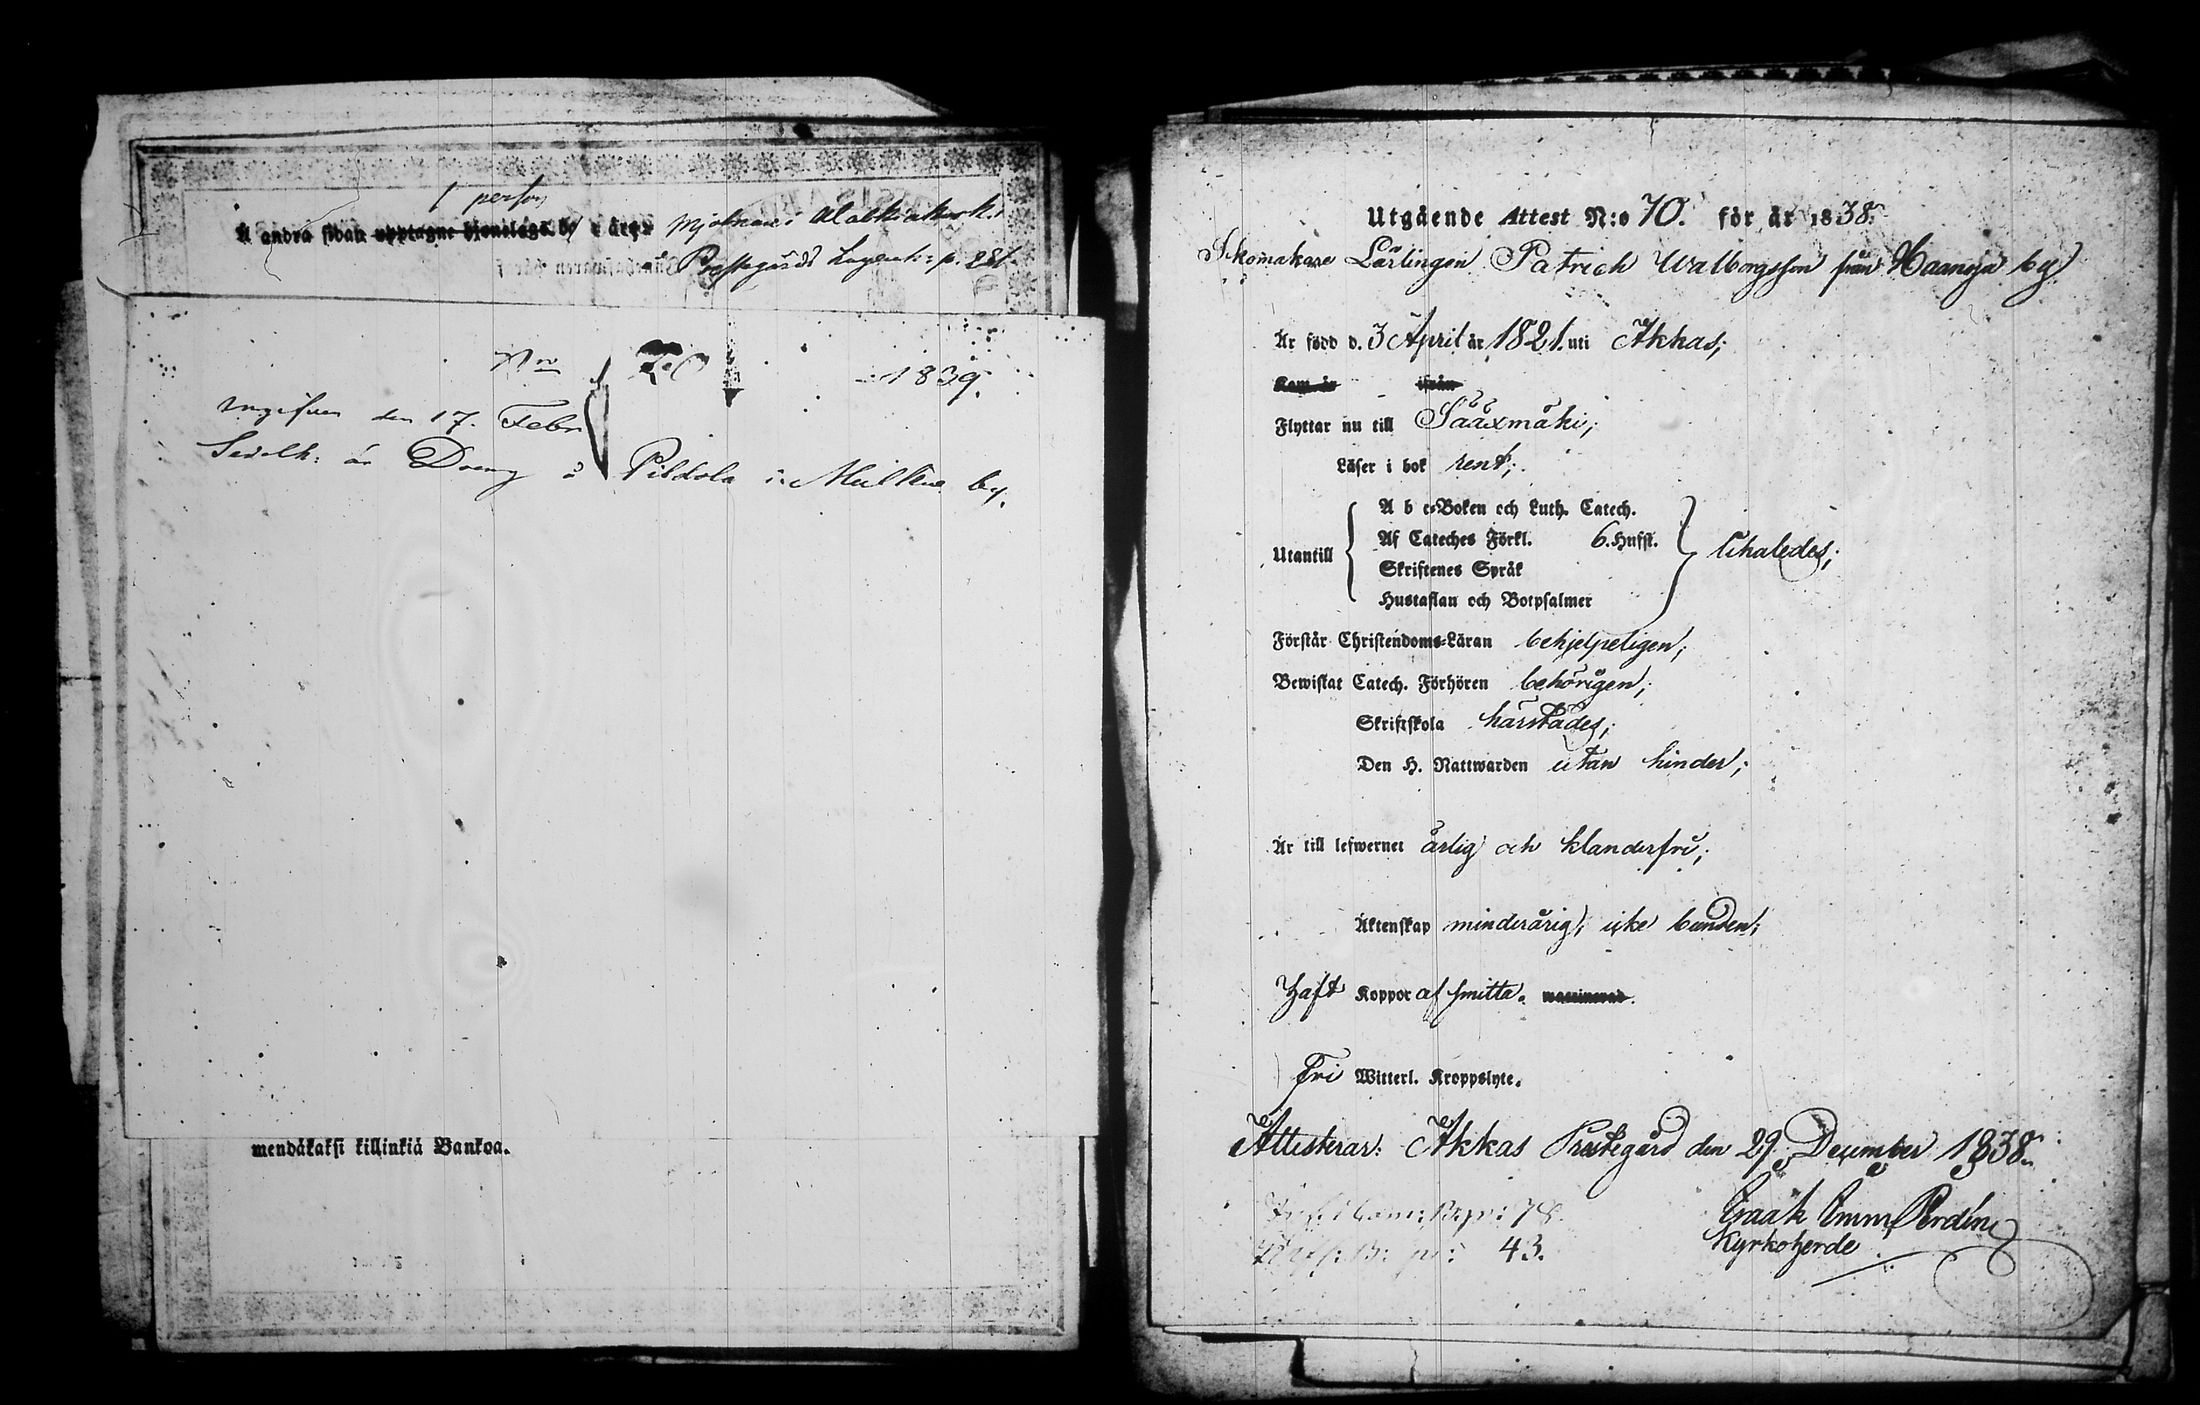 1 person
Å andra sidan upptagne Hjonelags bo
Prestegårds Lägenh: p. 281.
Nro 20 1839.
ingifven den 17. Febr.
Sedelh: är Dreng å Pildola i Mälkiä by.
mendäkaksi killinkiä Bankoa.
Utgående Attest N:o 70. för år 1838.
Skomakare Lärlingen Patrick Walborgsson från Haanoja by
Är född d. 3 April år 1821. uti Akkas;
Kom år ifrån
Flyttar nu till Sääxmäki;
Läser i bok rent;
A b c-Boken och Luth. Catech.
Af Cateches Förkl. 6. Hufst.
Utantill
Skriftenes Språk
Hustaflan och Botpsalmer
likaledes;
Förstår Christendoms-Läran behjelpeligen;
Bewistat Catech. Förhören behörigen;
Skriftskola härstädes;
Den H. Nattwarden utan hinder;
Är till lefwernet ärlig och klanderfri;
Äktenskap minderårig, icke bunden;
Haft Koppor af smitta. waccinerad.
Fri Witterl. Kroppslyte.
Attesterar: Akkas Prestegård den 29 December 1838.
78.
43.
Isaak Emm. Perdin
Kyrkoherde